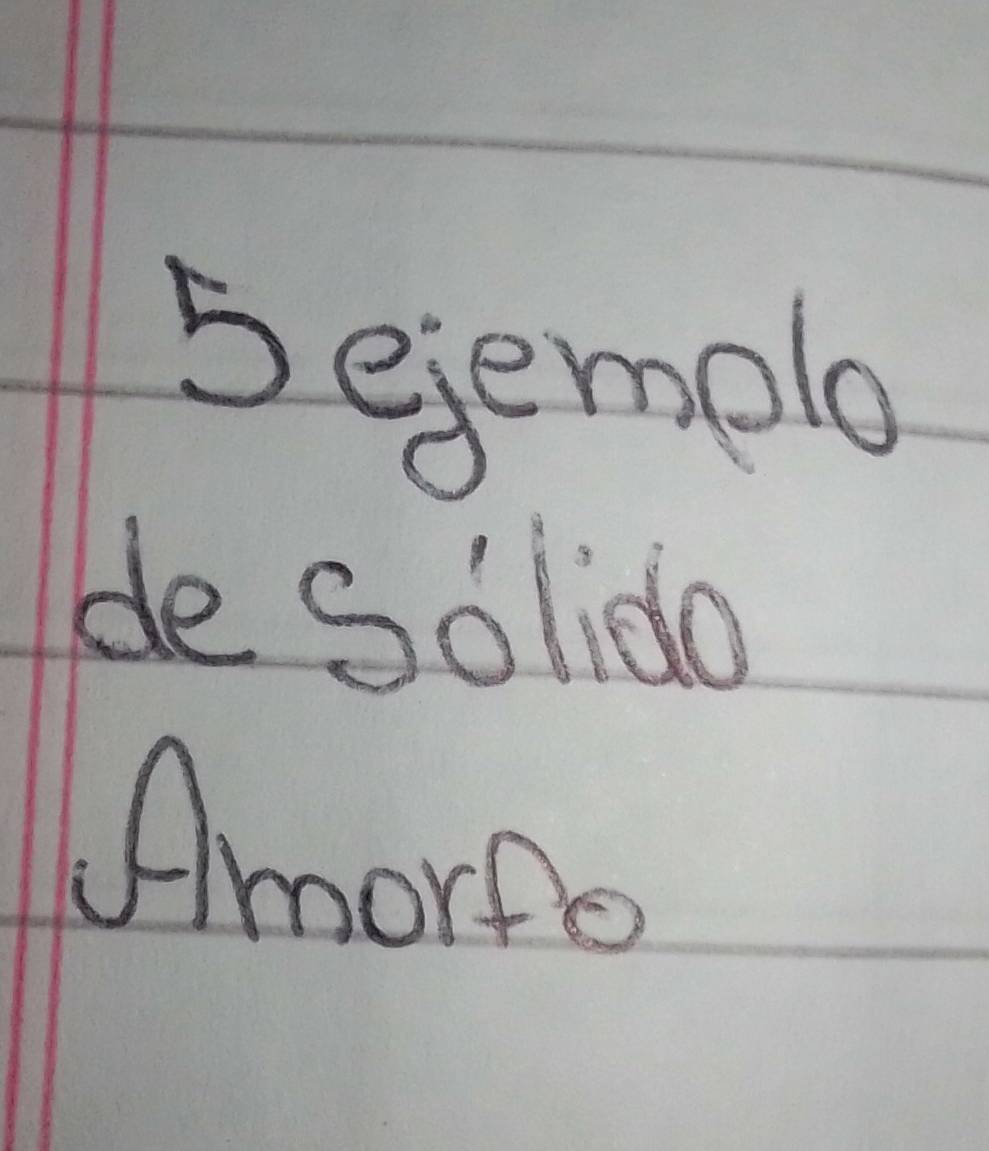 5 ejemplo
de Sólido
Amorfo